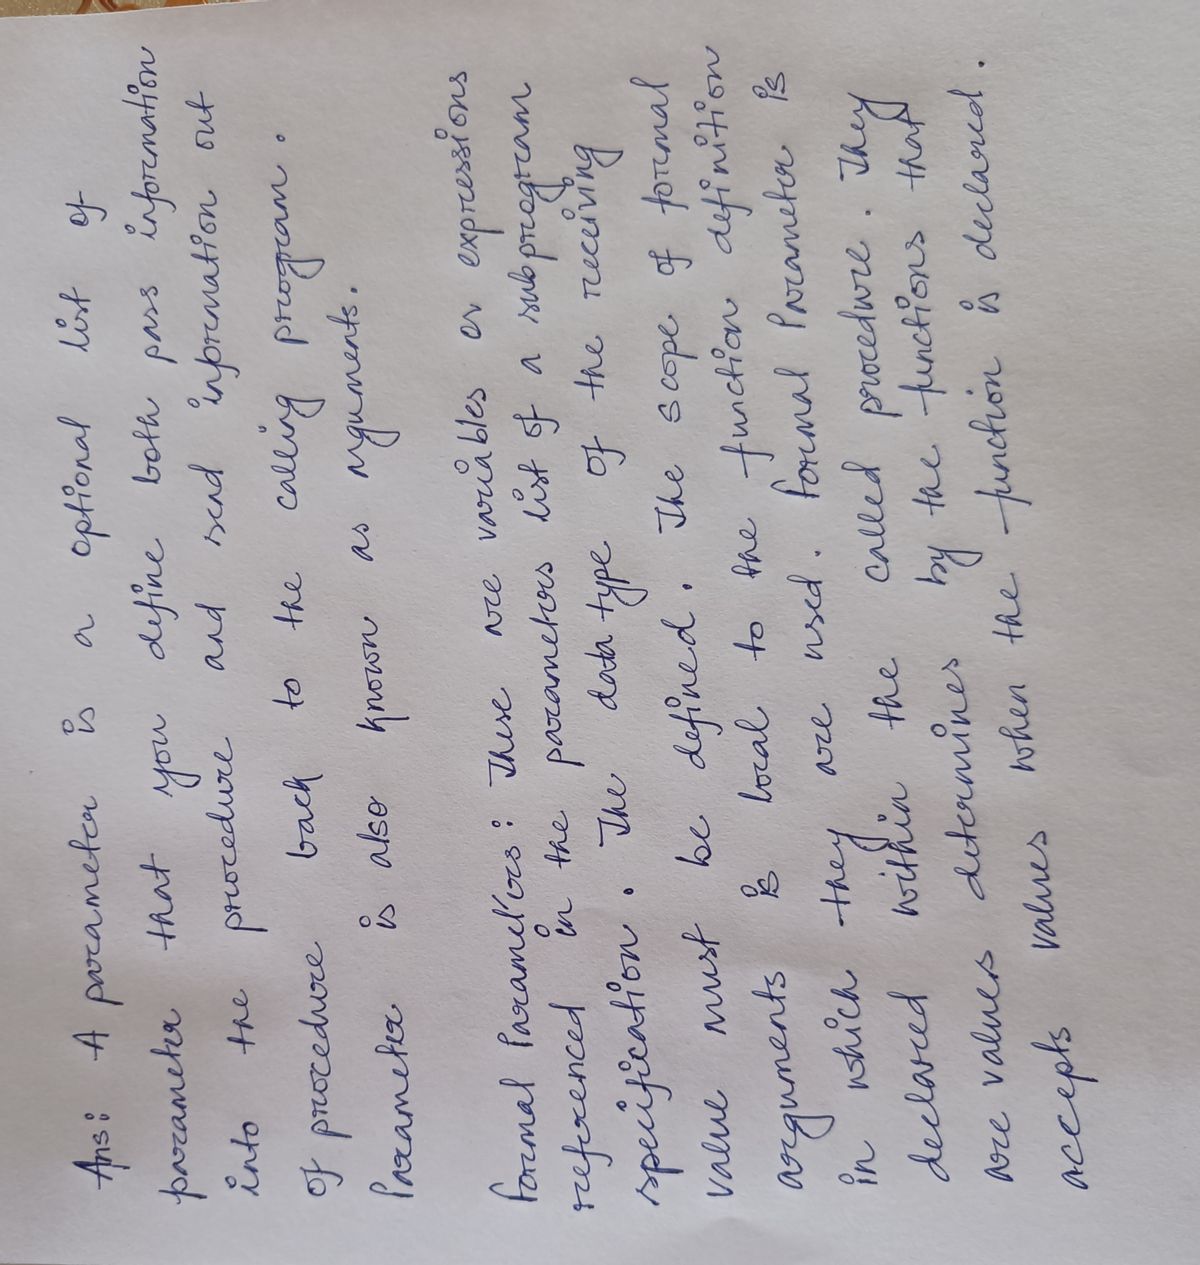 Ans: A parameter is a optional list of
parameter that you define both pass information
into the procedure and send information out
of procedure back to the calling program.
Parameter is also known as arguments.
Formal Parameters: These are variables or expressions
referenced in the parameters list of a subprogram
specification. The data type of the receiving
value must be defined. The scope of formal
arguments is local to the function definition
in which they are used. Formal Parameter is
declared within the called procedure. They
are values determines by the functions that
accepts values when the function is declared.